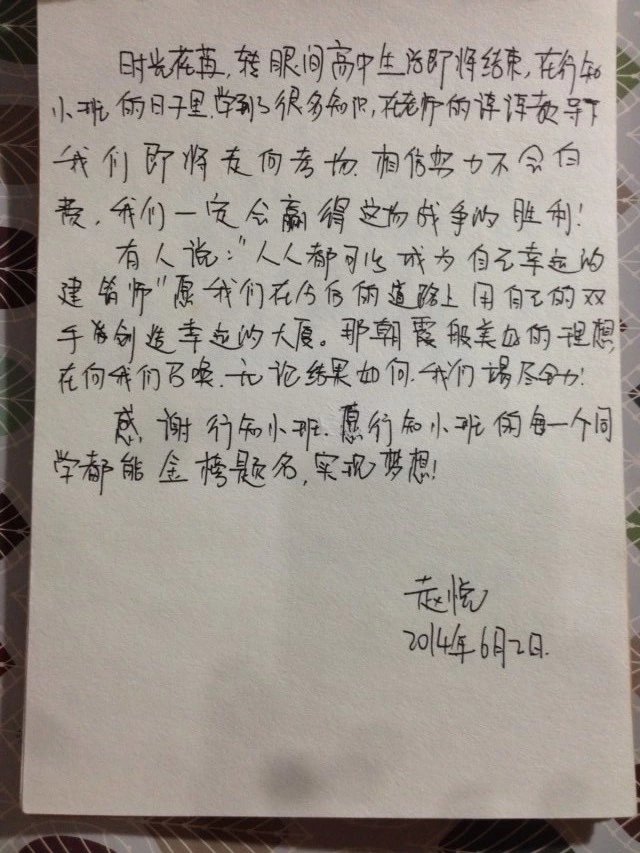 时光荏苒,转眼间高中生活即将结束,在行知
小班的日子里,学到了很多知识,在老师的谆谆教导下
我们即将走向考场.相信努力不会白
费,我们一定会赢得这场战争的胜利!
有人说:"人人都可以成为自己幸运的
建筑师"愿我们在今后的道路上用自己的双
手创造幸运的大厦。那朝霞般美好的理想
在向我们召唤.无论结果如何.我们竭尽全力!
感谢行知小班.愿行知小班的每一个同
学都能金榜题名,实现梦想!
赵悦
2014年6月2日.